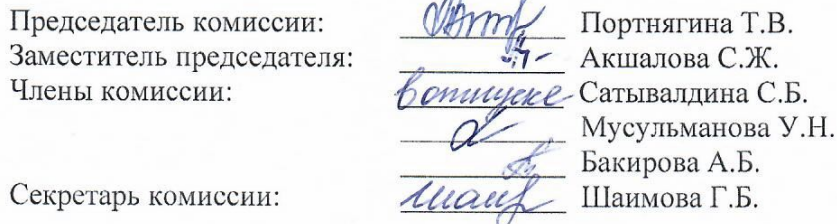 Председатель комиссии: Портнягина Т.В.
Заместитель председателя: Акшалова С.Ж.
Члены комиссии: в отпуске Сатывалдина С.Б.
Мусульманова У.Н.
Бакирова А.Б.
Секретарь комиссии: Шаимова Г.Б.